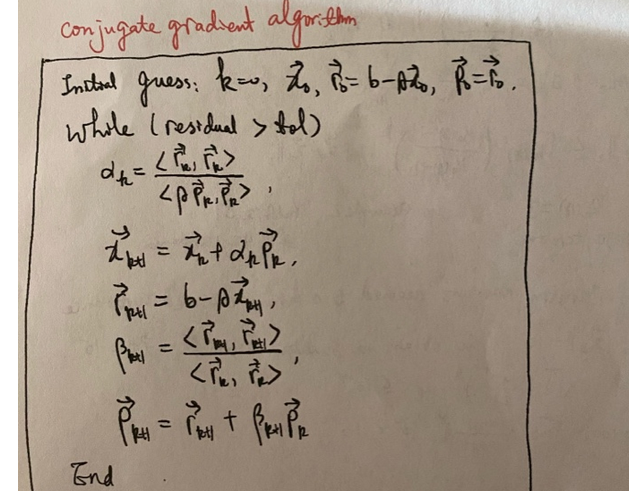 conjugate gradient algorithm
Initial guess: k=0, x⃗₀, r⃗₀ = b - Ax⃗₀, p⃗₀ = r⃗₀.
While (residual > tol)
αₖ = <r⃗ₖ, r⃗ₖ> / <Ap⃗ₖ, p⃗ₖ>,
x⃗ₖ₊₁ = x⃗ₖ + αₖp⃗ₖ,
r⃗ₖ₊₁ = b - Ax⃗ₖ₊₁,
βₖ₊₁ = <r⃗ₖ₊₁, r⃗ₖ₊₁> / <r⃗ₖ, r⃗ₖ>,
p⃗ₖ₊₁ = r⃗ₖ₊₁ + βₖ₊₁p⃗ₖ
End